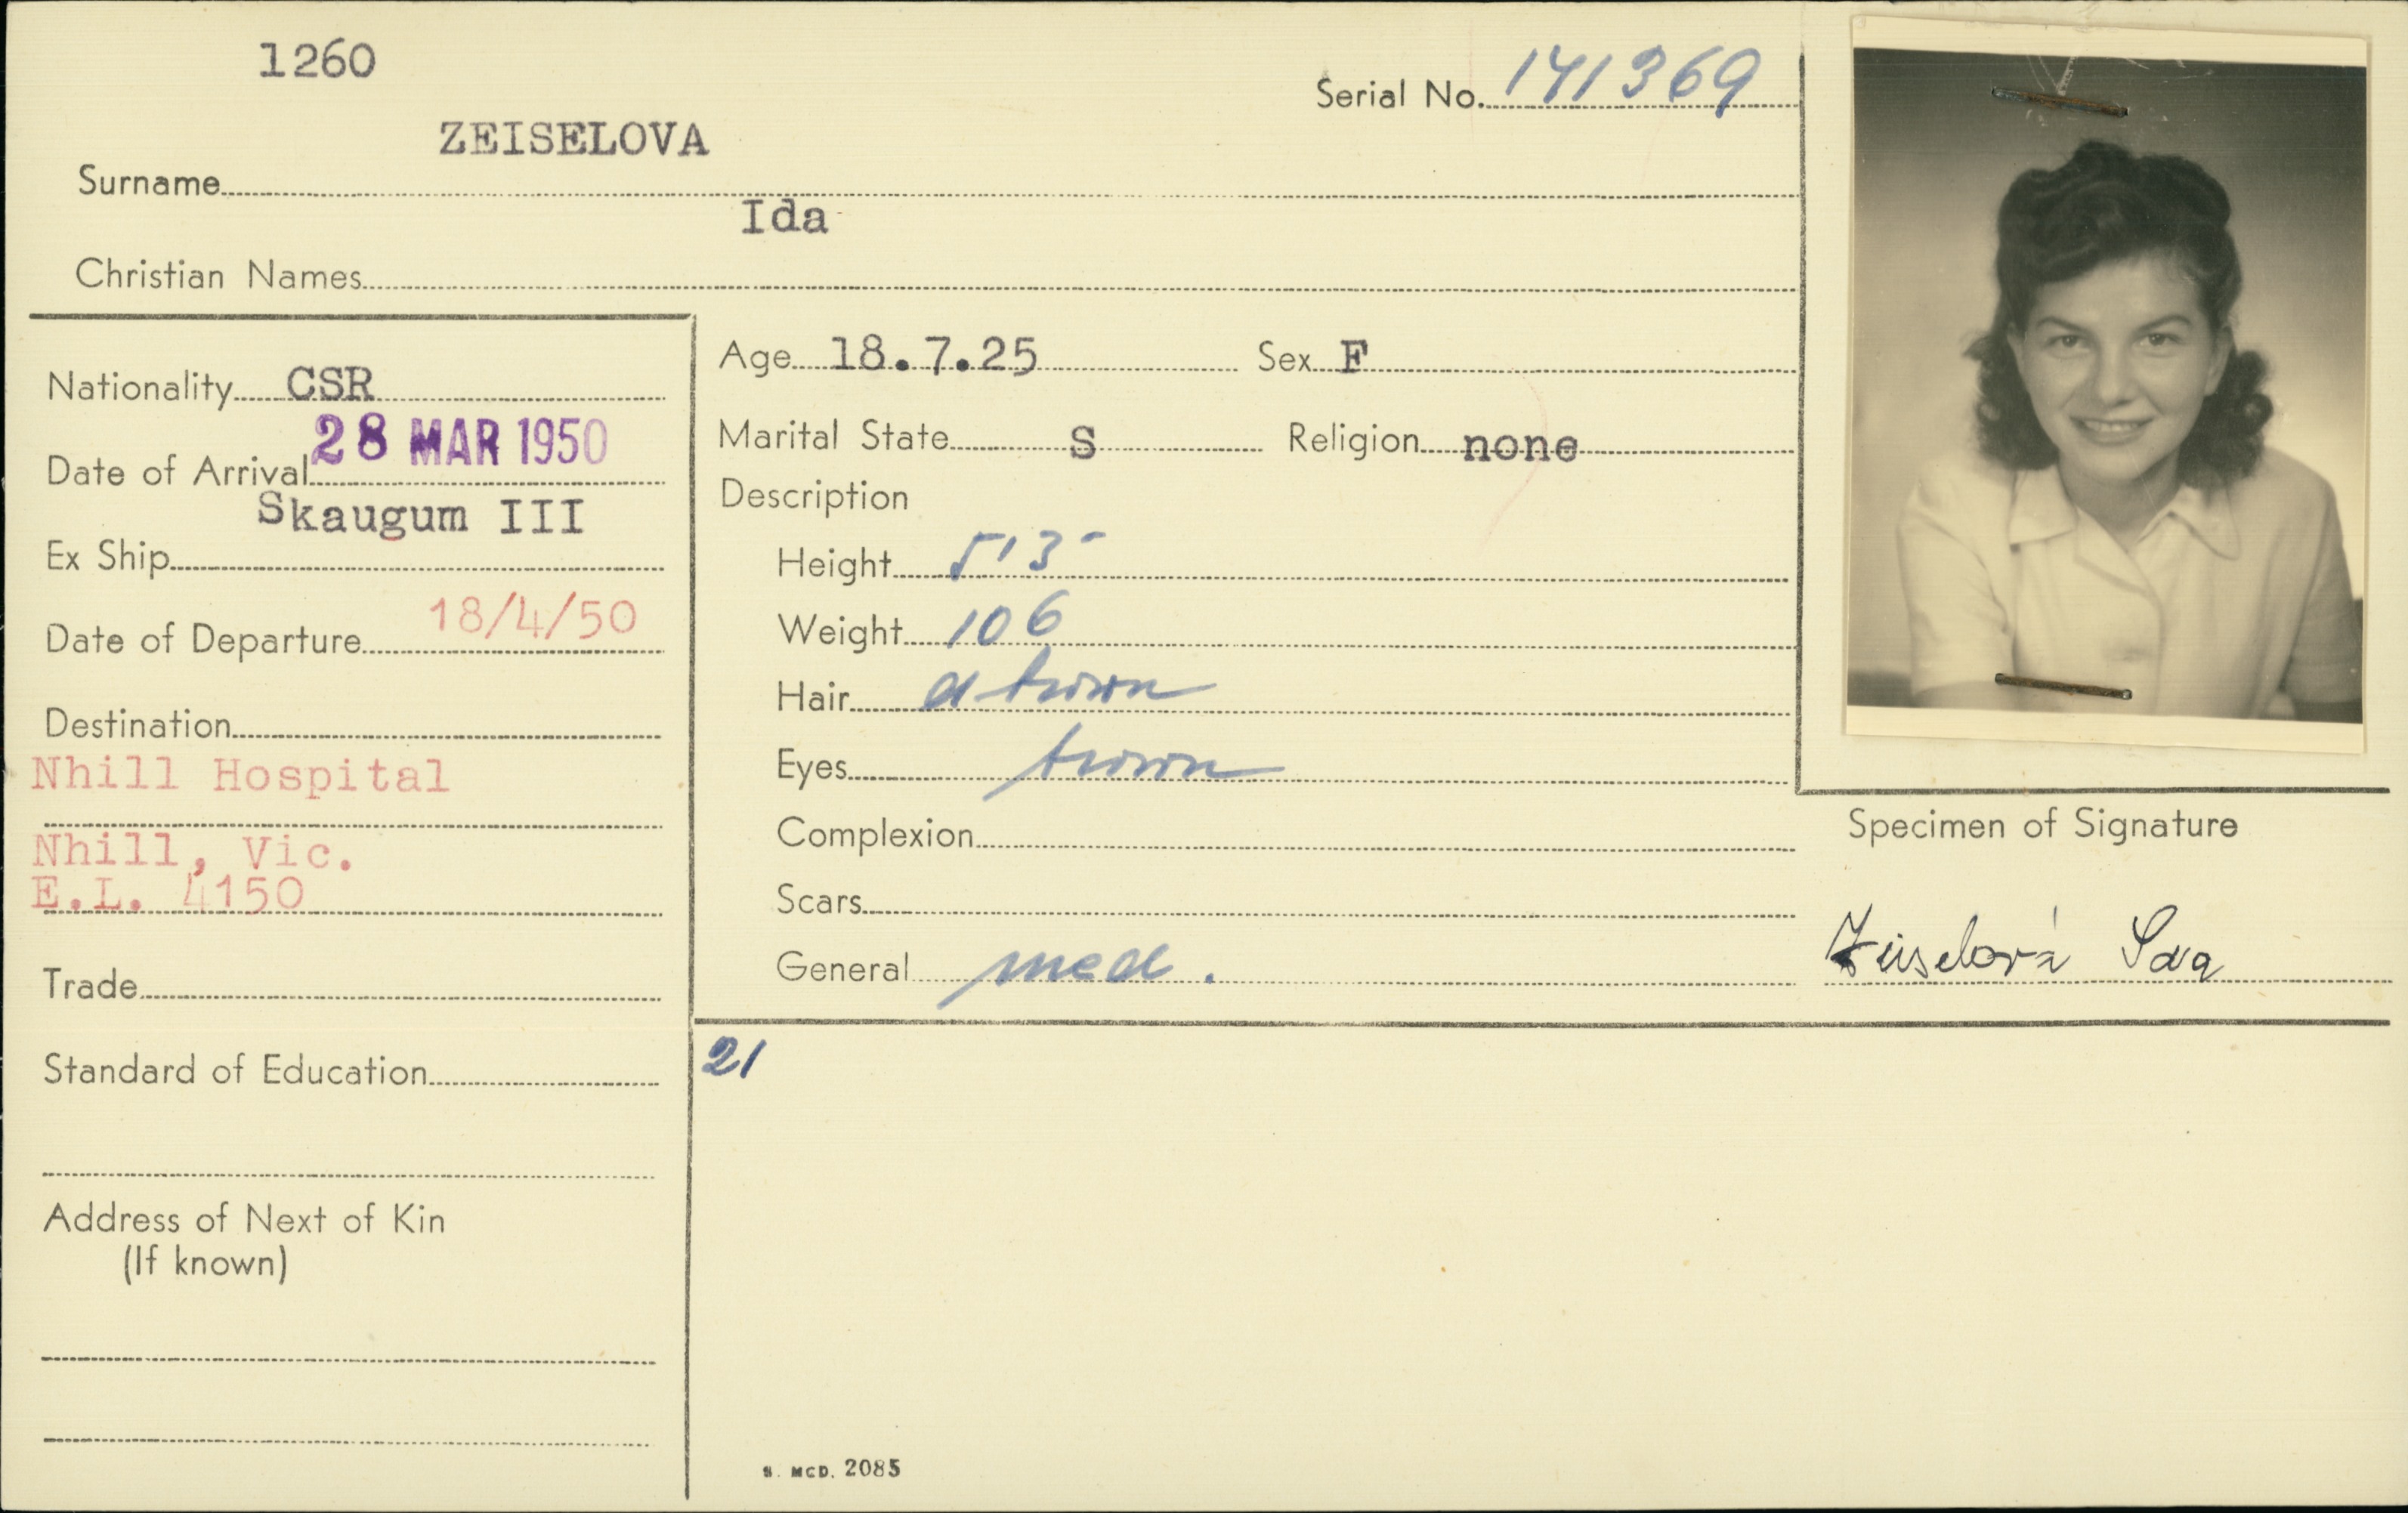 1260
Serial No. 141369
ZEISELOVA
Surname
Ida
Christian Names
Nationality CSR
28 MAR 1950
Date of Arrival
Skaugum III
Ex Ship
18/4/50
Date of Departure
Destination
Nhill Hospital
Nhill, Vic.
E.L. 4150
Trade
Standard of Education
Address of Next of Kin
(If known)
Age 18.7.25 Sex F
Marital State S Religion none
Description
Height 5'3"
Weight 106
Hair d brown
Eyes brown
Complexion
Scars
General med.
Specimen of Signature
Zeiselová Ida
21
S. MCD. 2085